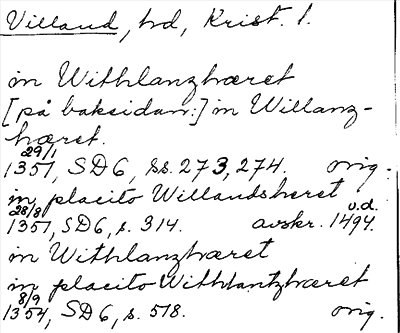 Villand, hd, Krist. l.
in Withlanzhæret
[på baksidan:] in Willanz-
hæret.
29/1
1351, SD6, ss. 273, 274. orig.
in placito Willandsheret
28/8 v.d.
1351, SD6, s. 314. avskr. 1494.
in Withlanzhæret
in placito Withlantzhæret
8/9
1354, SD6, s. 518. orig.